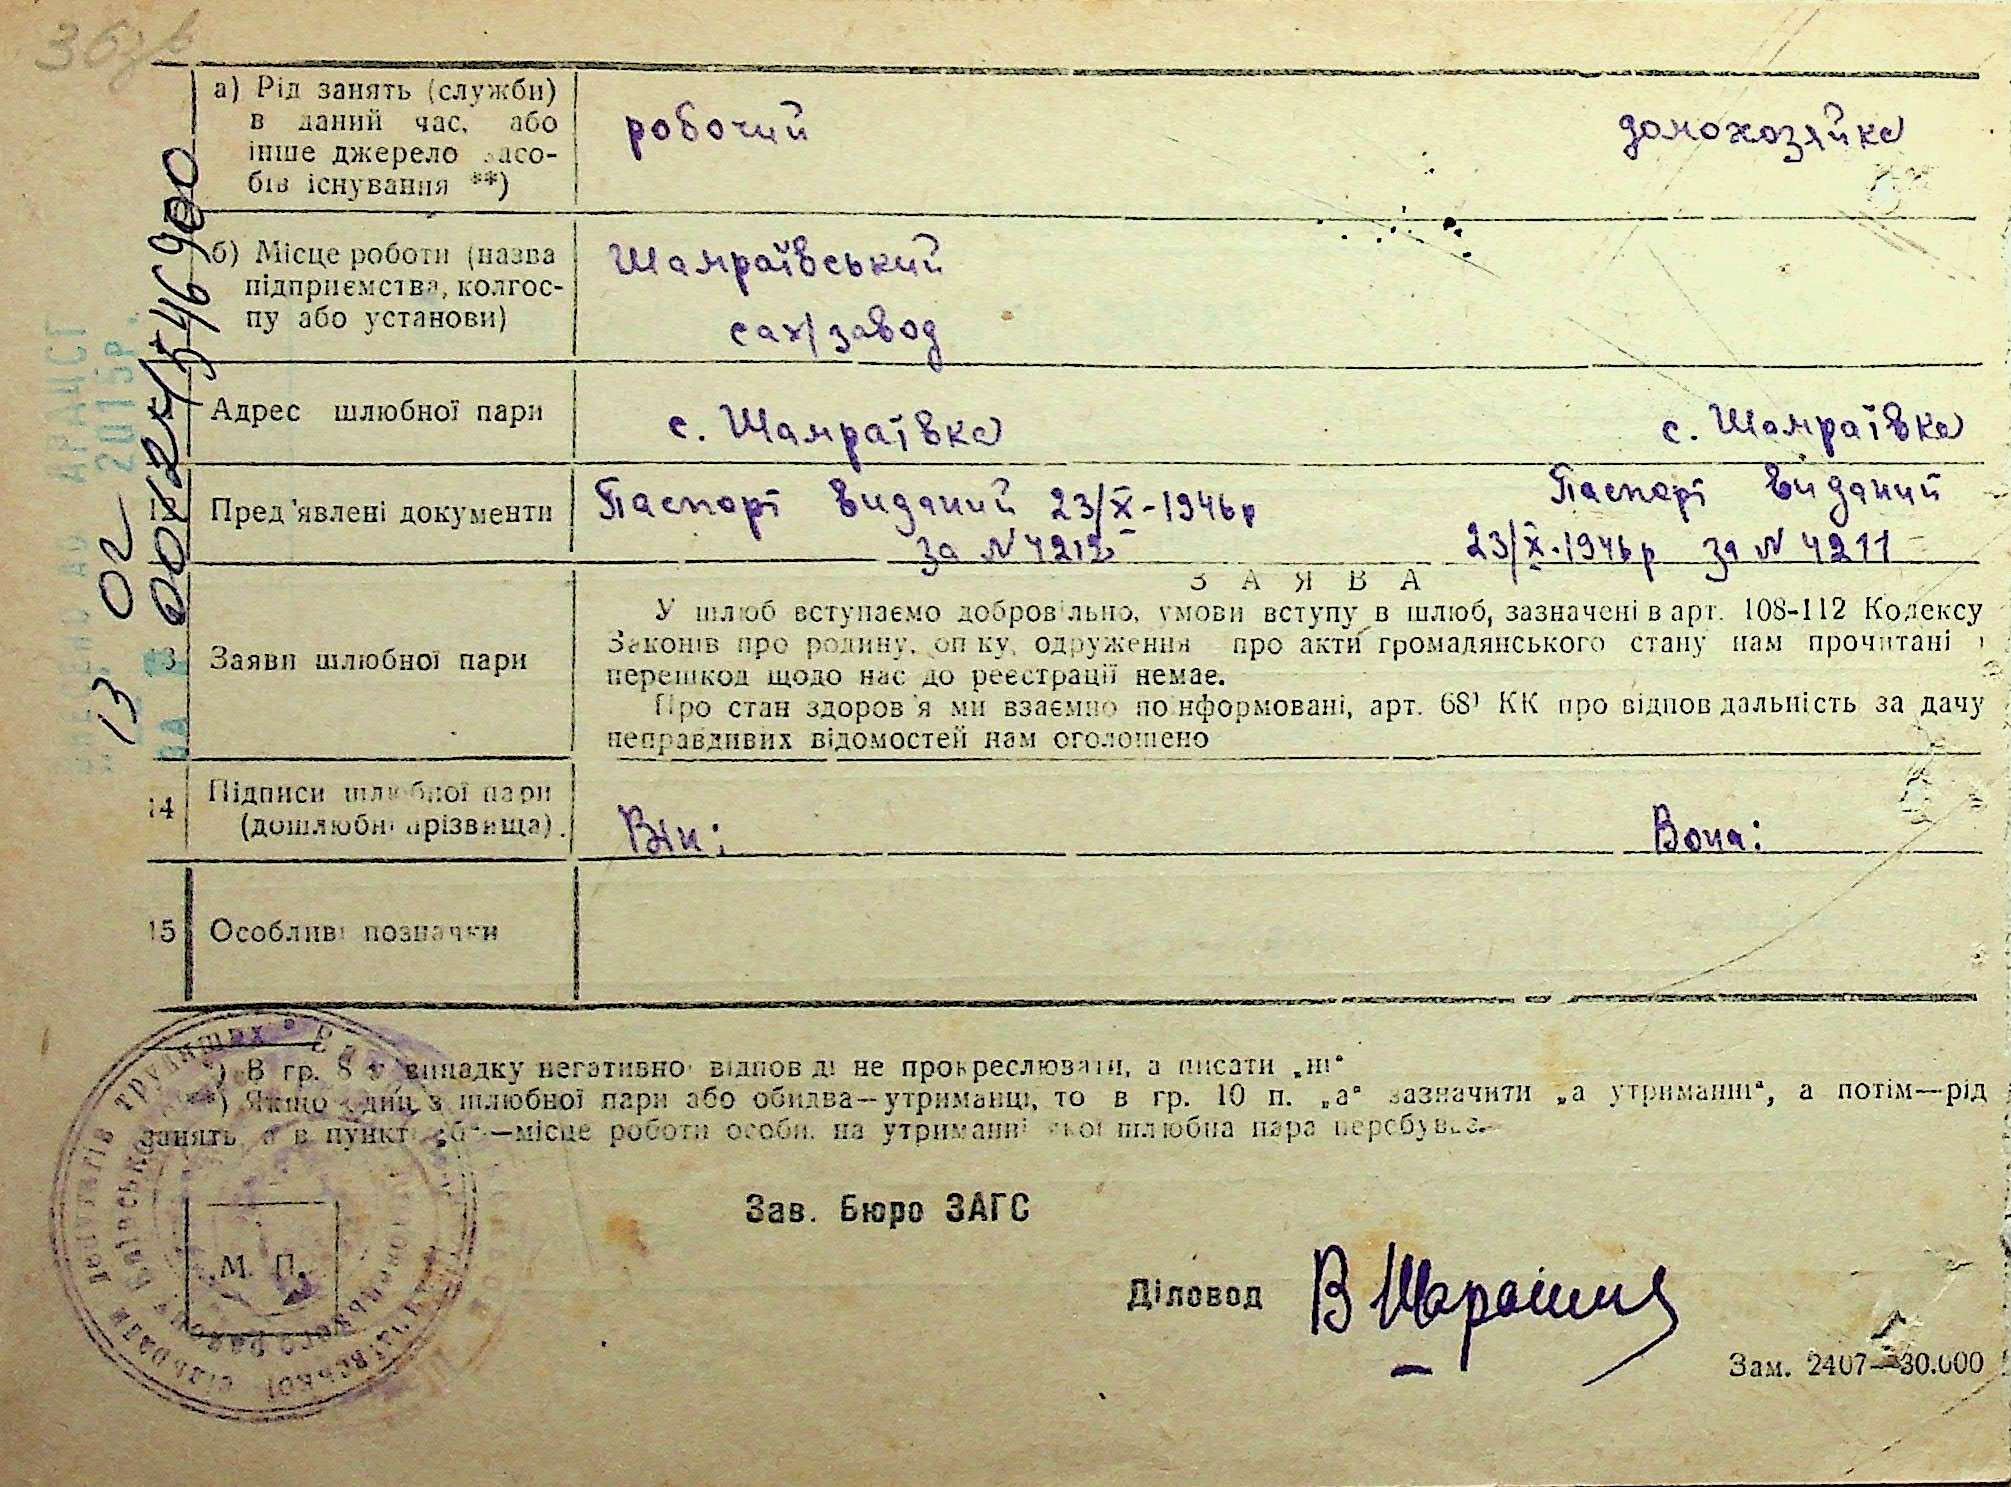 а) Рід занять (служби)
в даний час, або
інше джерело засо-
бів існування **)
робочий
домохозяйка
б) Місце роботи (назва
підприємства, колгос-
пу або установи)
Шамраївський
сах/завод
Адрес шлюбної пари
с. Шамраївка
с. Шамраївка
Пред'явлені документи
Паспорт виданий 23/X-1946р
за N 4212
Паспорт виданий
23/X-1946р за N 4211
З А Я В А
Заяви шлюбної пари
У шлюб вступаємо добровільно, умови вступу в шлюб, зазначені в арт. 108-112 Кодексу
Законів про родину, опіку, одруження про акти громадянського стану нам прочитані і
перешкод щодо нас до реєстрації немає.
Про стан здоров'я ми взаємно поінформовані, арт. 68¹ КК про відповідальність за дачу
неправдивих відомостей нам оголошено
14
Підписи шлюбної пари
(дошлюбні прізвища).
Він:
Вона:
15
Особливі позначки
*) В гр. 8 у випадку негативної відповіді не прокреслювати, а писати „ні“
**) Якщо один з шлюбної пари або обидва—утриманці, то в гр. 10 п. „а“ зазначити „на утриманні“, а потім—рід
занять, а в пункті „б“—місце роботи особи, на утриманні якої шлюбна пара перебуває.
Зав. Бюро ЗАГС
М. П.
Діловод
Зам. 2407—30.000
13 02
00124546900
2015р.